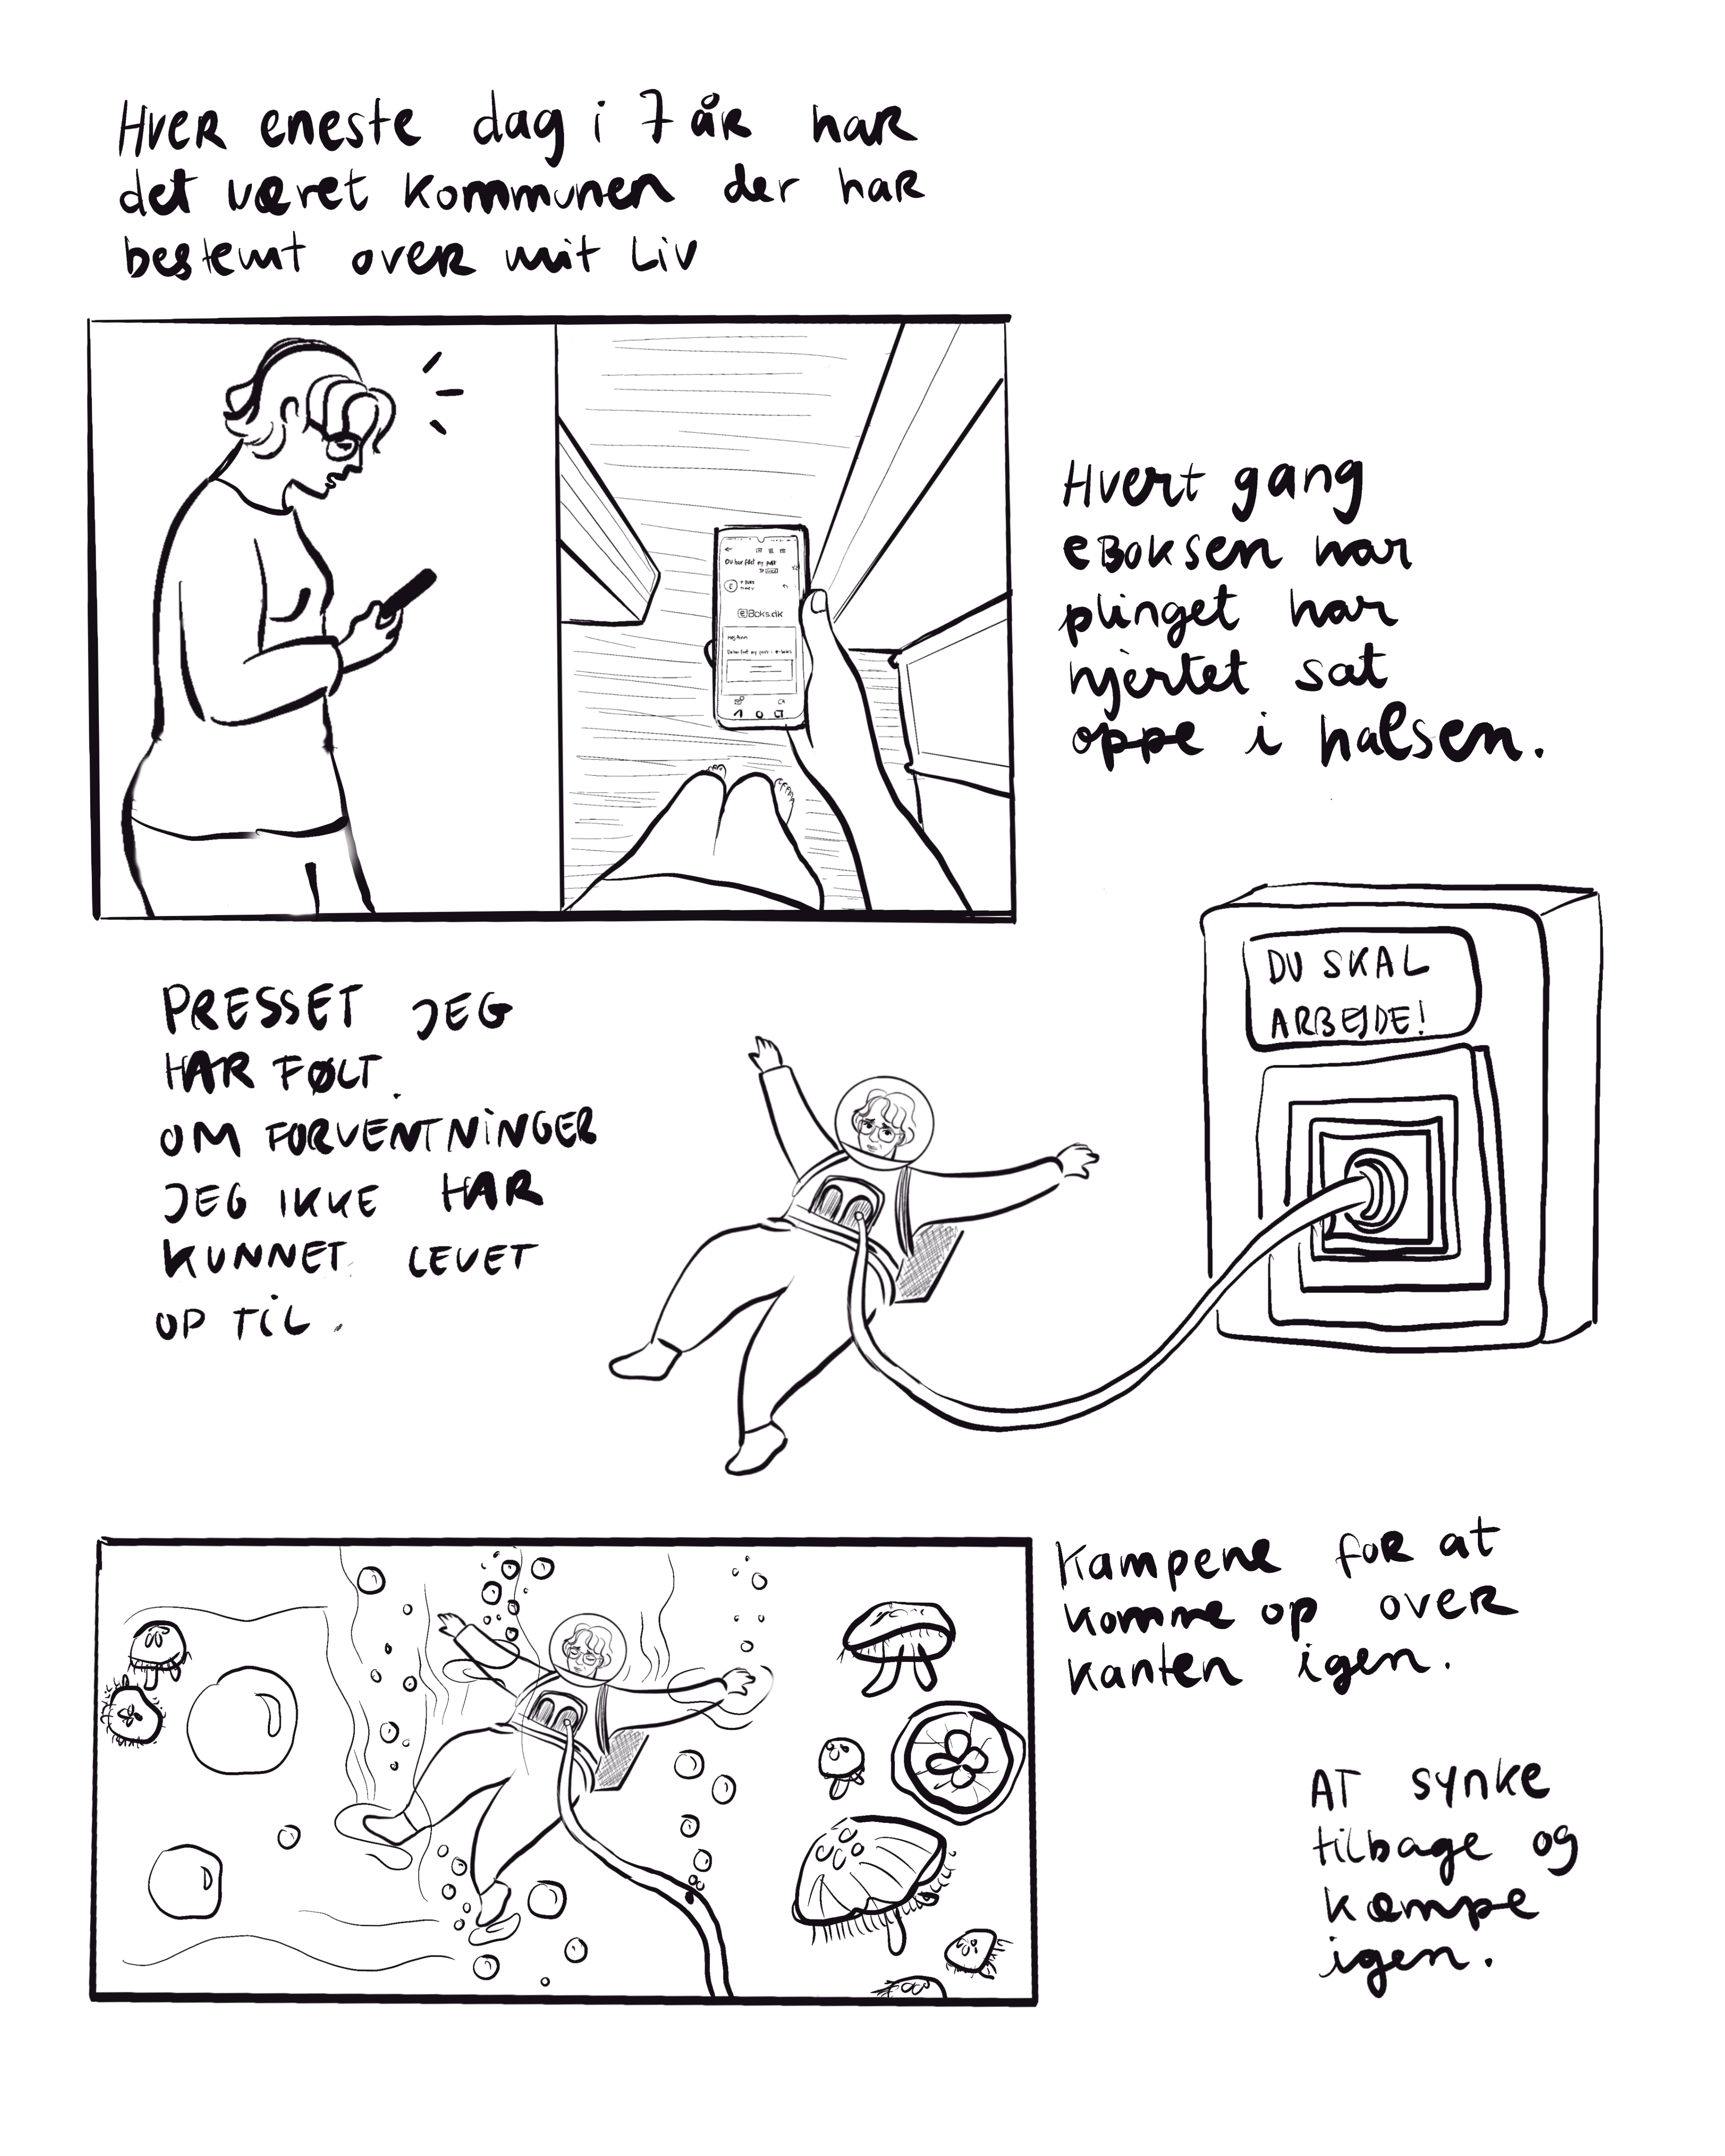 Hver eneste dag i 7 år har
det været kommunen der har
bestemt over mit liv
Du har fået ny post
eBoks.dk
Hvert gang
eBoksen har
plinget har
hjertet sat
oppe i halsen.
DU SKAL
ARBEJDE!
PRESSET JEG
HAR FØLT.
OM FORVENTNINGER
JEG IKKE HAR
KUNNET LEVET
OP TIL.
Kampene for at
komme op over
kanten igen.
AT synke
tilbage og
kæmpe
igen.